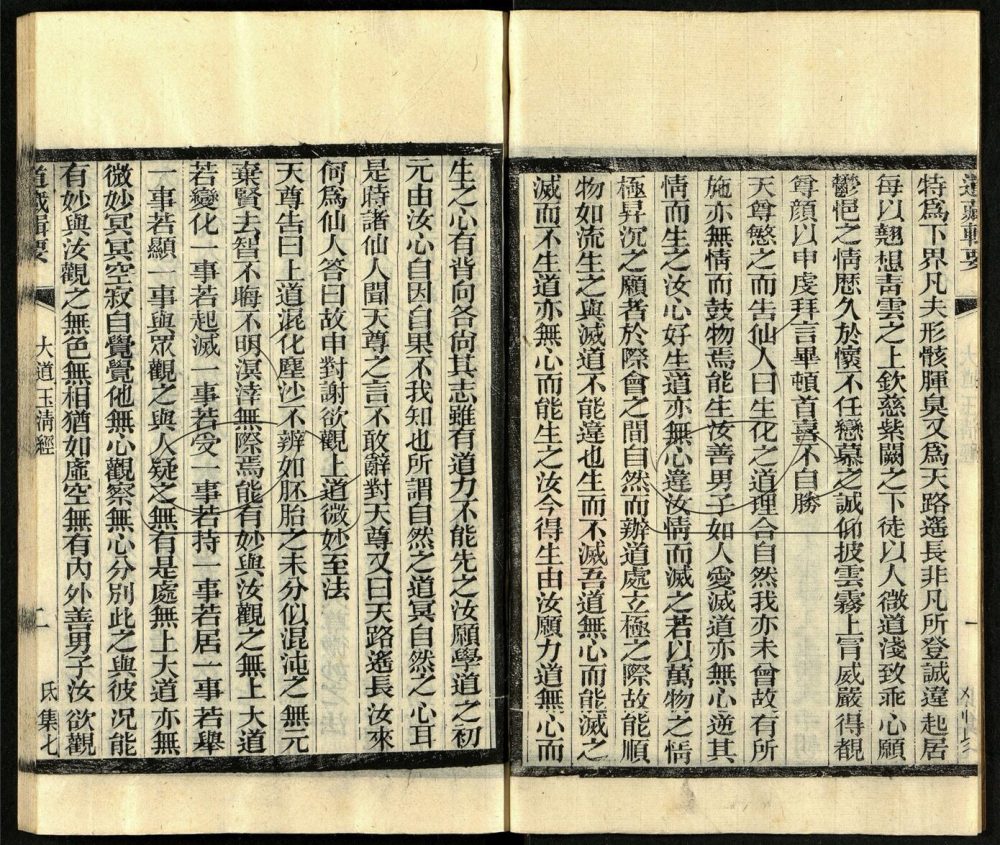 道藏輯要
一
特爲下界凡夫形骸腫臭又爲天路遙長非凡所登誠違起居
每以翹想靑雲之上欽慈紫闕之下徒以人微道淺致乖心願
鬱悒之情歷久於懷不任戀慕之誠仰披雲霧上冒威嚴得覩
尊顏以申虔拜言畢頓首喜不自勝
天尊慜之而告仙人曰生化之道理合自然我亦未曾故有所
施亦無情而鼓物焉能生汝善男子如人愛滅道亦無心逆其
情而生之汝心好生道亦無心違汝情而滅之若以萬物之情
極昇沉之願者於際會之間自然而辦道處立極之際故能順
物如流生之與滅道不能違也生而不滅吾道無心而能滅之
滅而不生道亦無心而能生之汝今得生由汝願力道無心而
生之心有背向各尙其志雖有道力不能先之汝願學道之初
元由汝心自因自果不我知也所謂自然之道冥自然之心耳
是時諸仙人聞天尊之言不敢辭對天尊又曰天路遙長汝來
何爲仙人答曰故申對謝欲觀上道微妙至法
天尊告曰上道混化塵沙不辨如胚胎之未分似混沌之無元
棄賢去智不晦不明溟涬無際焉能有妙與汝觀之無上大道
若變化一事若起滅一事若受一事若持一事若居一事若舉
一事若顯一事與眾觀之與人疑之無有是處無上大道亦無
微妙冥冥空寂自覺覺他無心觀察無心分別此之與彼況能
有妙與汝觀之無色無相猶如虛空無有內外善男子汝欲觀
道藏輯要
大道玉淸經
二
氐集七